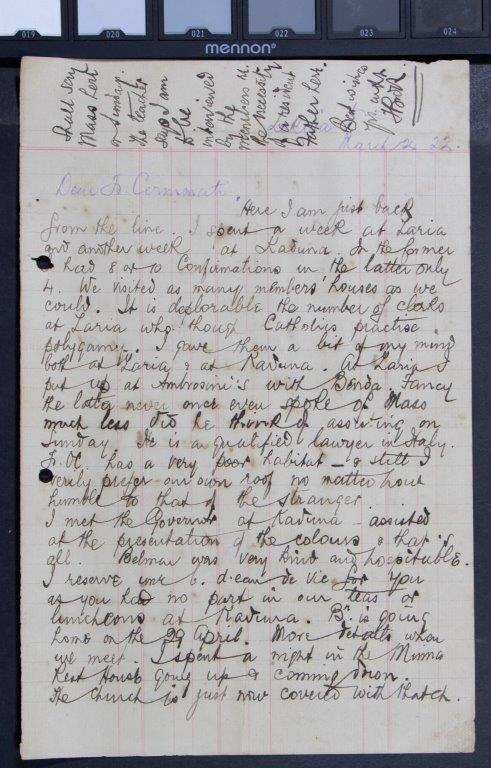 019 020 021 022 023 024
mennon
Shall say
Mass here
on Sunday.
The teacher
says I am
to be
interviewed
by the
members re.
the necessity
of a resident
Father here.
Best wishes
March 22
Dear Fr
Here I am just back
from the line. I spent a week at Zaria
and another week at Kaduna. In the former
I had 8 or 10 Confirmations in the latter only
4. We visited as many members houses as we
could. It is deplorable the number of clerks
at Zaria who though Catholics practise
polygamy. I gave them a bit of my mind
both at Zaria & at Kaduna. At Zaria I
put up at Ambrosini's with Fancy
the latter never once even spoke of Mass
much less did he think of assisting on
Sunday. He is a qualified lawyer in Italy.
Fr. has a very poor habitat - & still I
verily prefer our own roof no matter how
humble to that of the stranger.
I met the Governor at Kaduna - assisted
at the presentation of the colours & that is
all. Belman was very kind and hospitable.
I reserve d'eau de vie for you
as you had no part in our teas or
luncheons at Kaduna. B. is going
home on the 29 April. More details when
we meet. I spent a night in the Minna
Rest House going up & coming down.
The Church is just now covered with thatch.